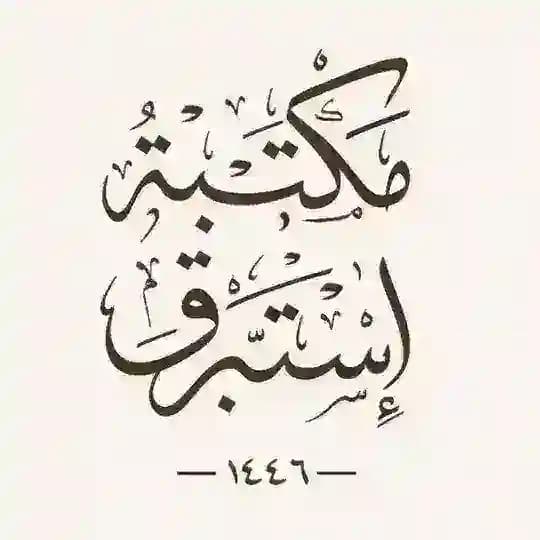 مكتبة
إستبرق
١٤٤٦